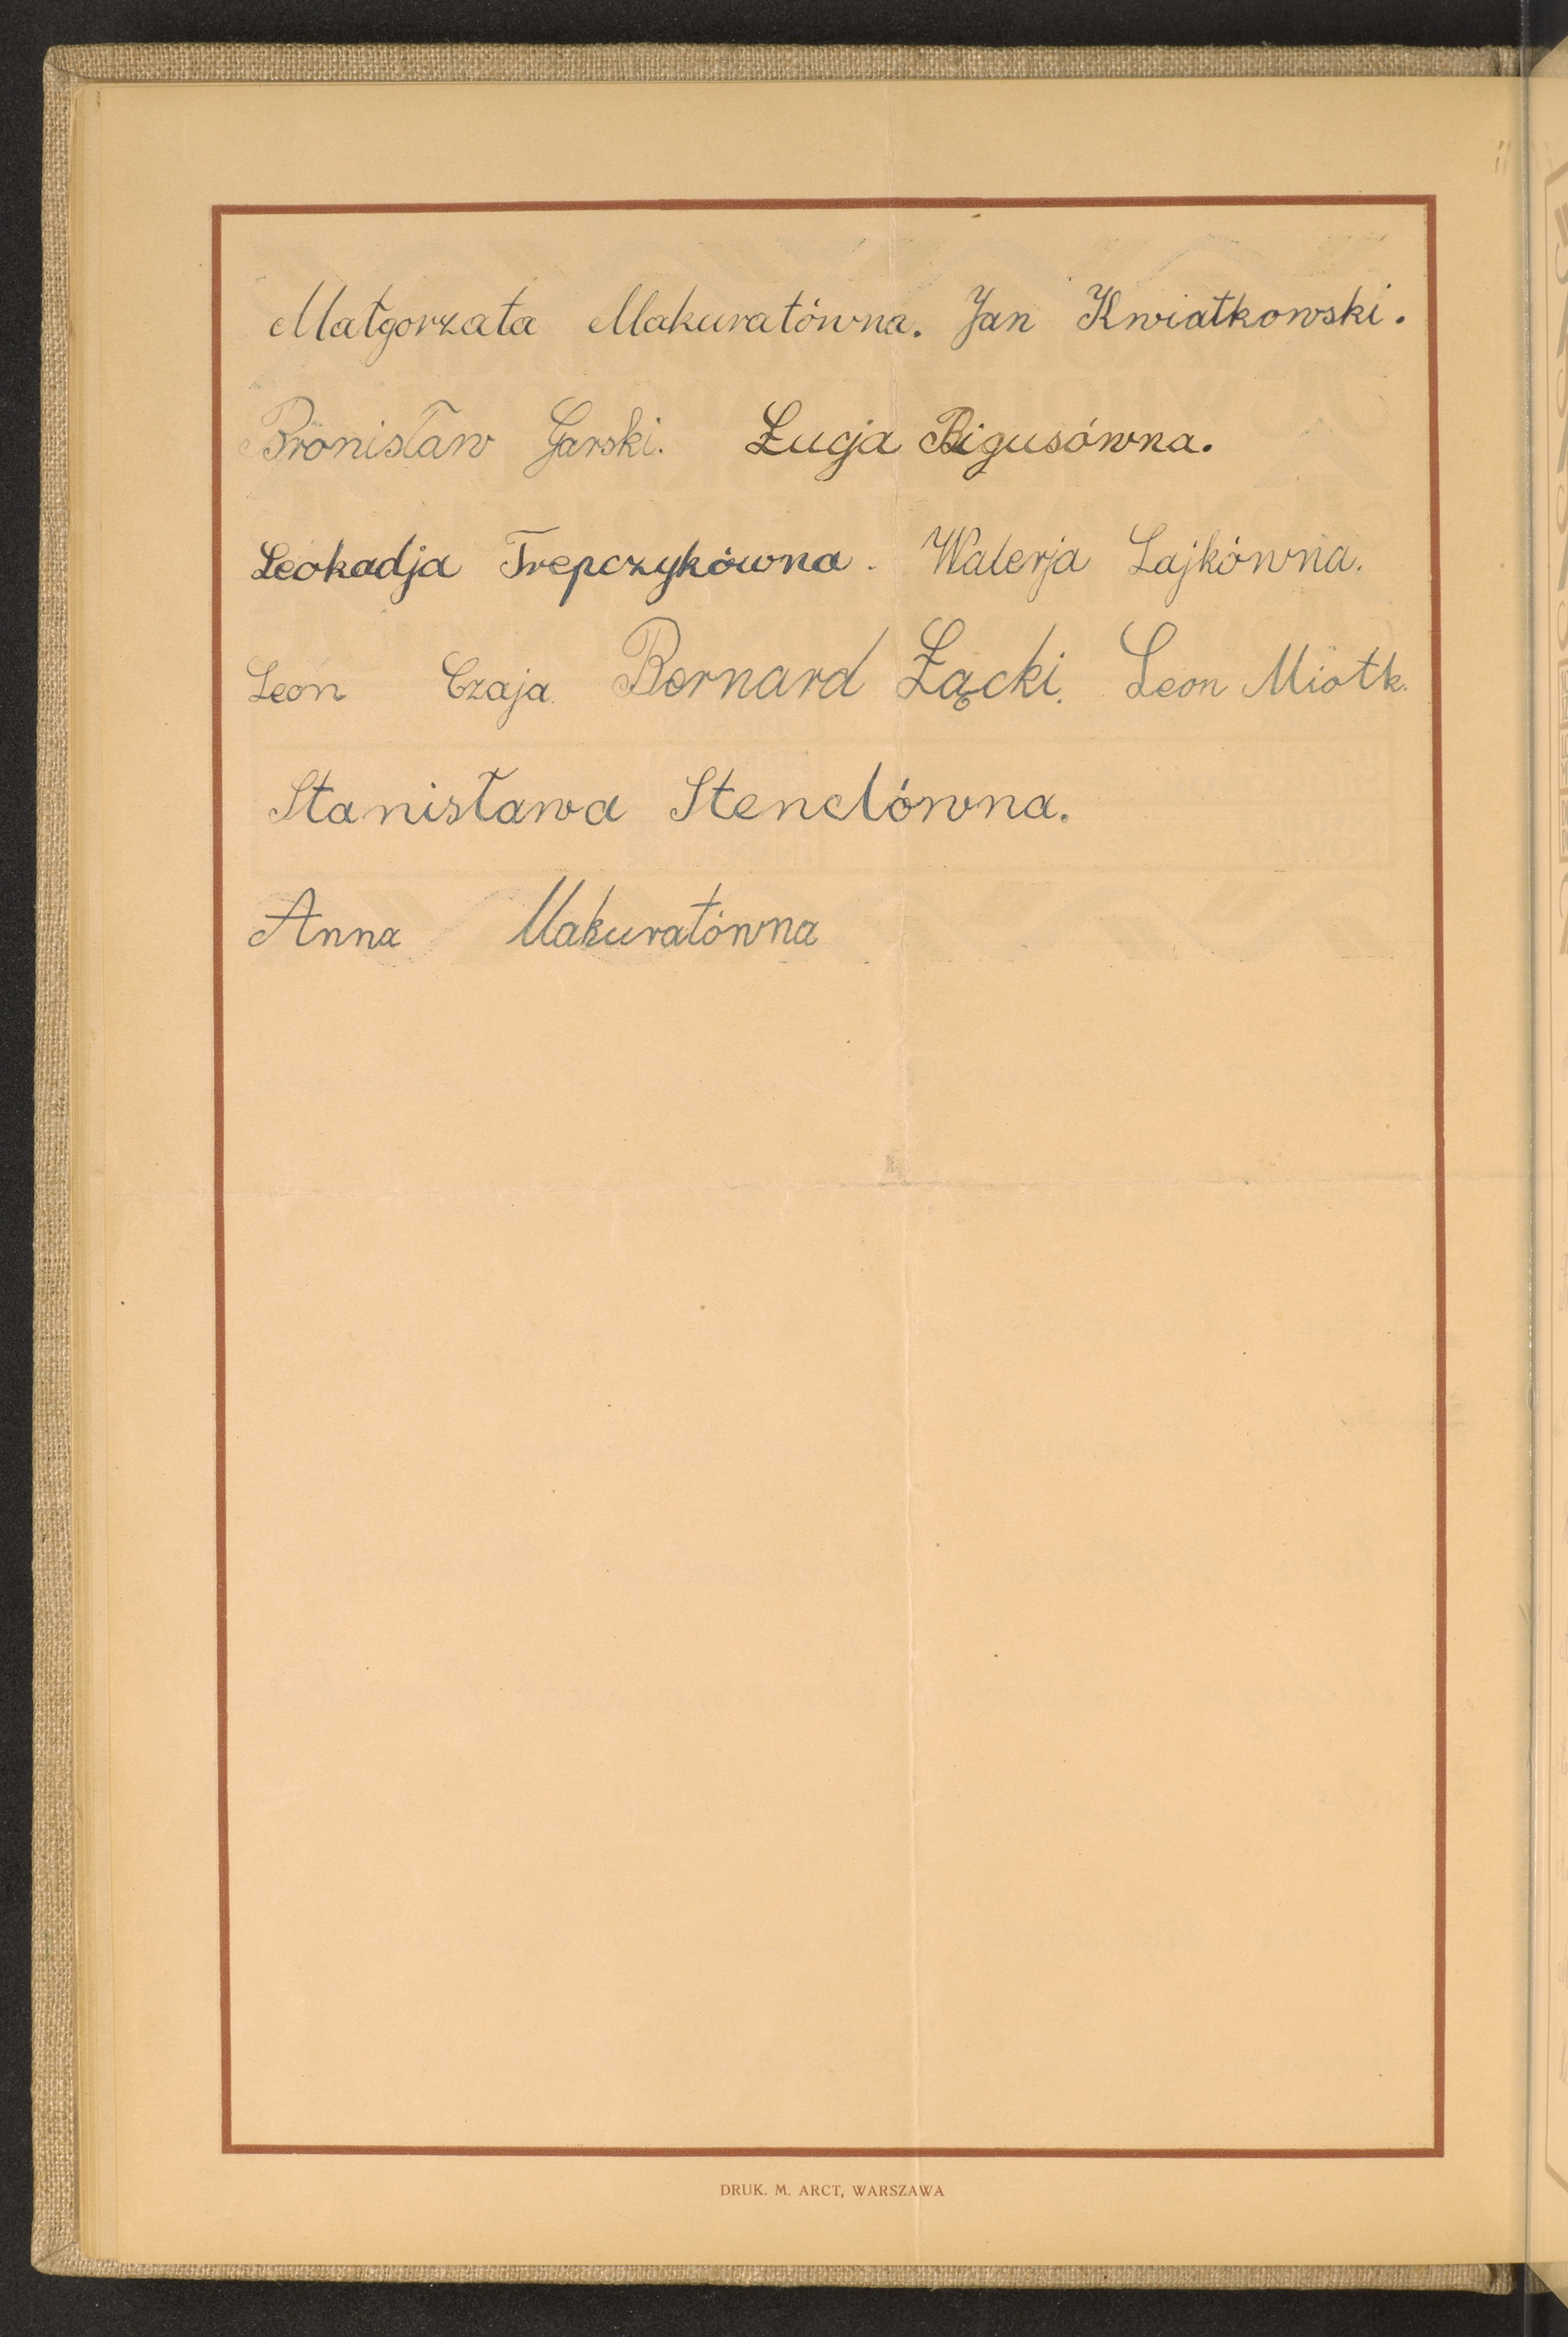 Małgorzata Makuratówna. Jan Kwiatkowski.
Bronisław Garski. Łucja Bigusówna.
Leokadja Trepczykówna. Walerja Lajkówna.
Leon Czaja. Bernard Łącki. Leon Miotk.
Stanisława Stenclówna.
Anna Makuratówna
DRUK. M. ARCT, WARSZAWA